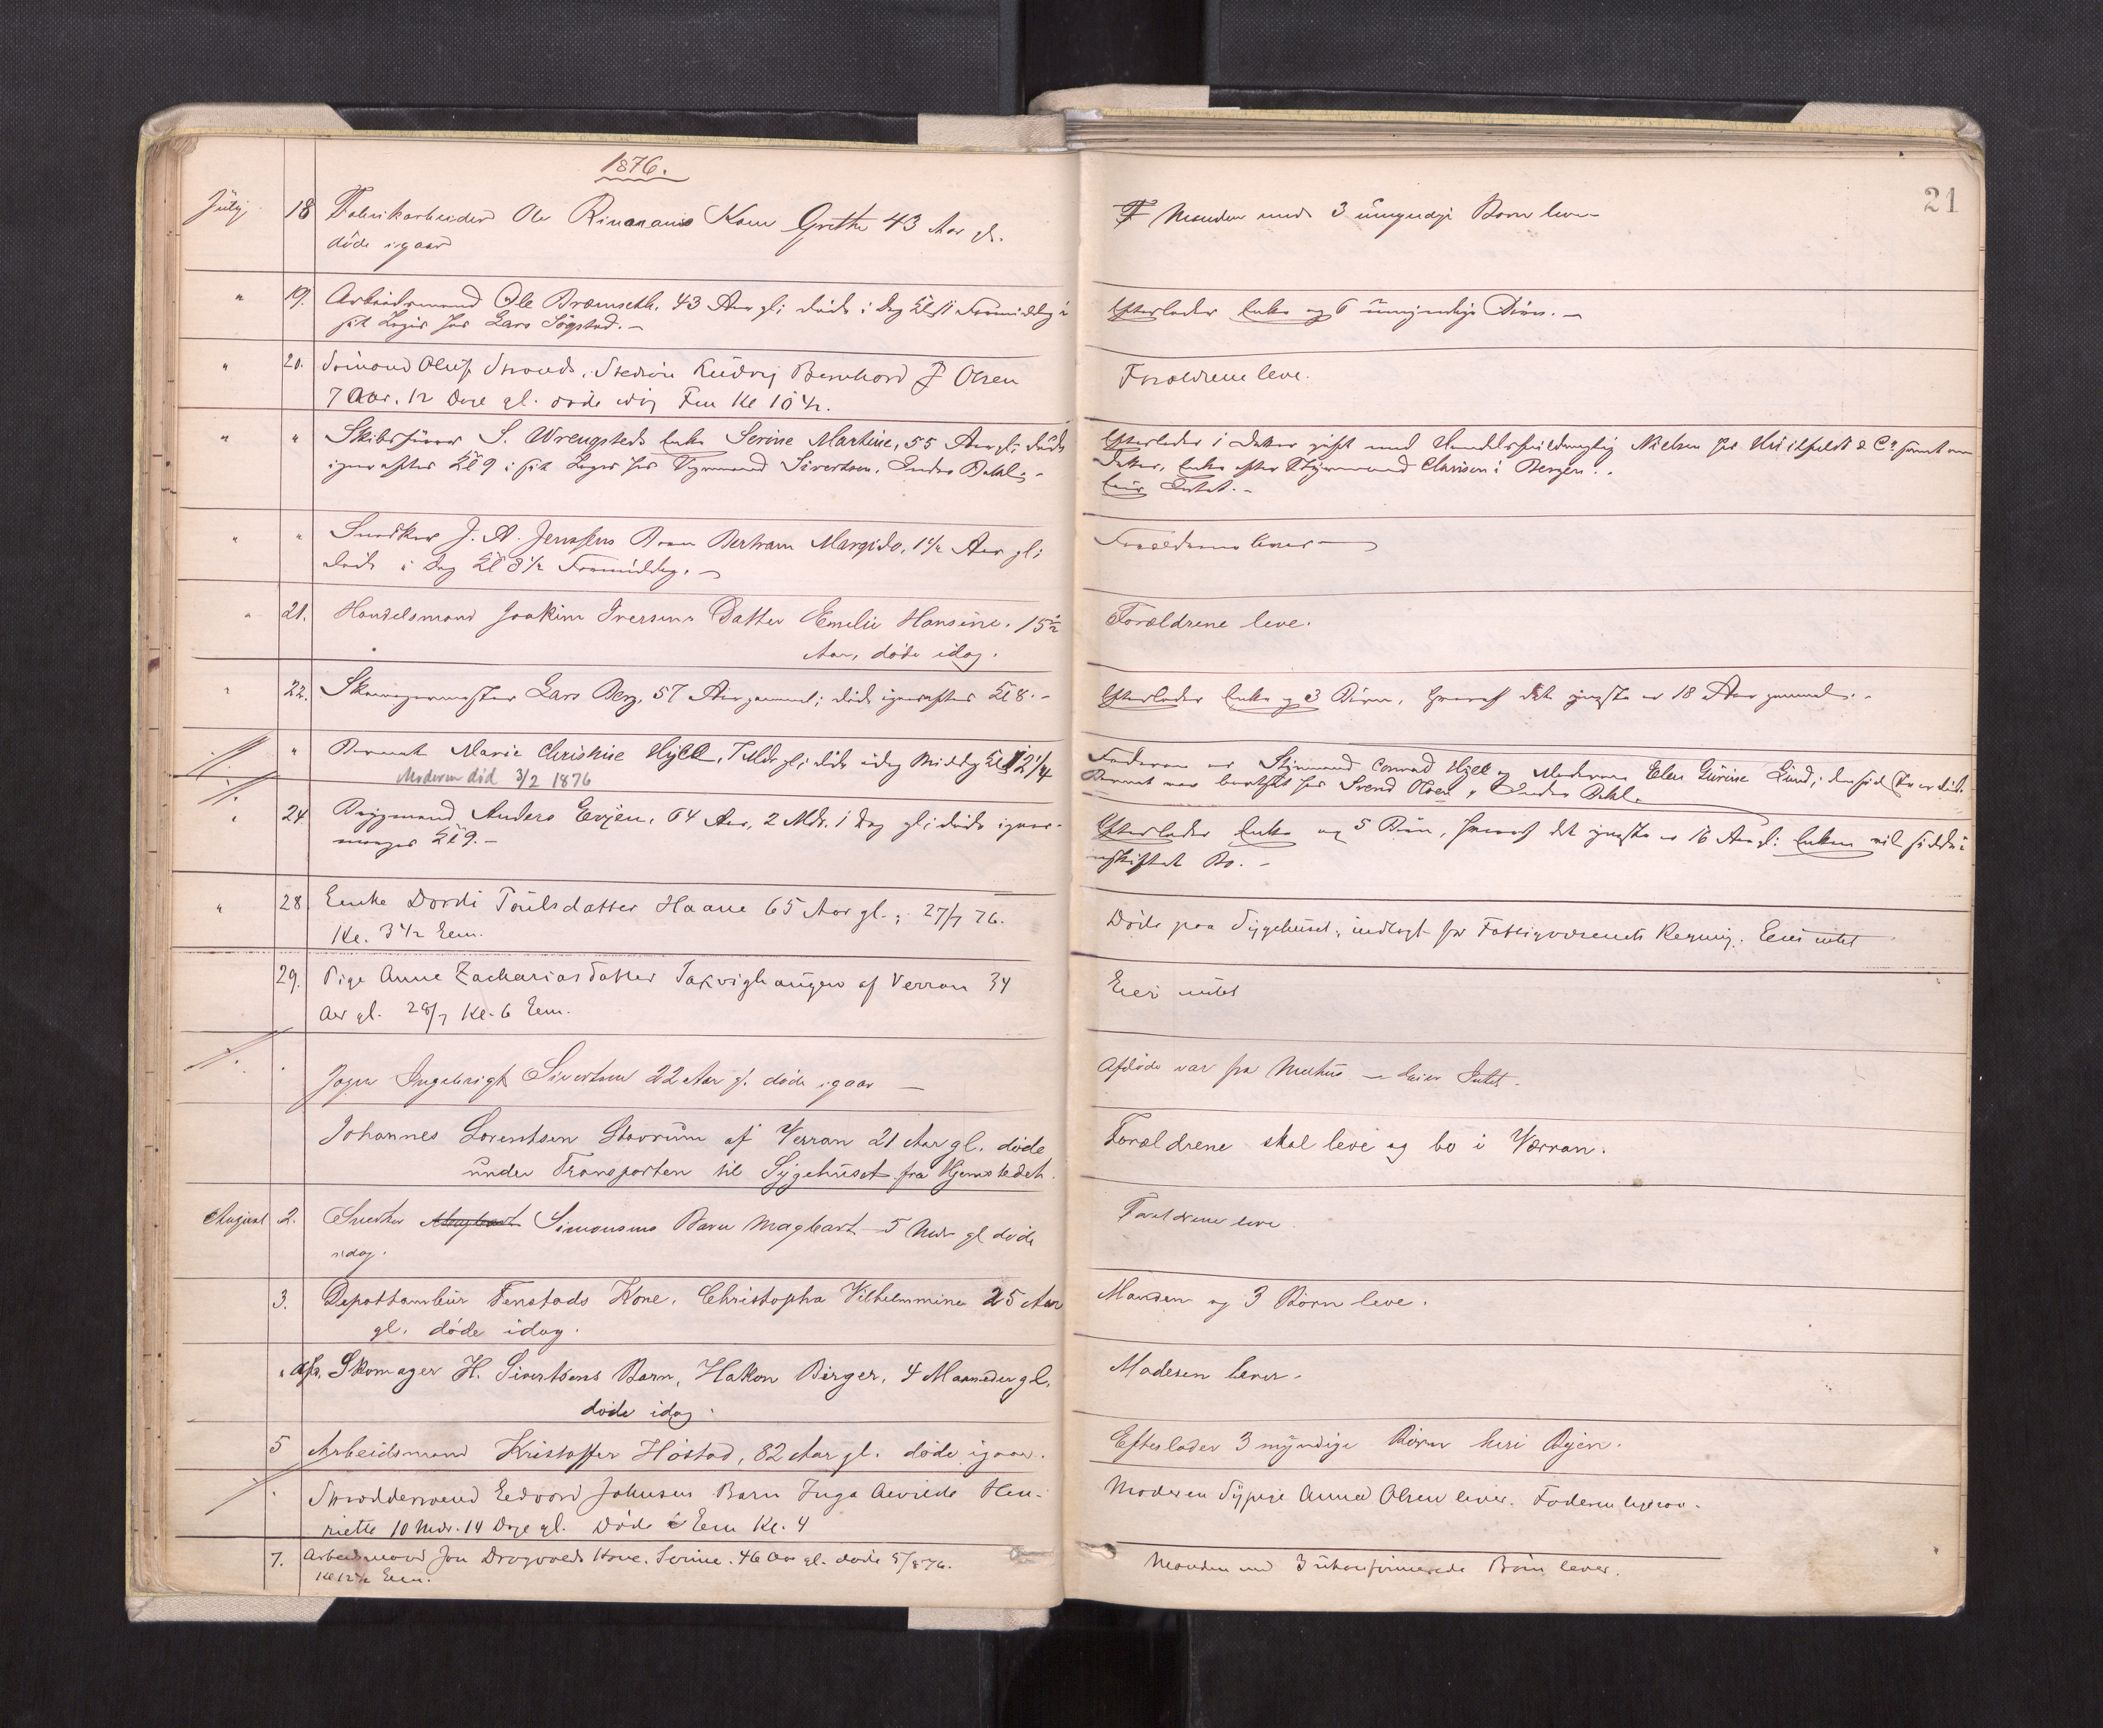 1876.
21
July 18 Fabrikarbeider Ole Rinnans Kone Grethe 43 Aar gl.
døde igaar
Manden med 3 umyndige Børn leve
" 19. Arbeidsmand Ole Bromseth, 43 Aar gl; døde i Dag Kl 11 Formiddag i
sit Logis hos Lars Løgstad.
Efterlader Enke og 6 umyndige Børn.
" 20. Olufs Ludvig Bernhard Olsen
7 Aar. 12 Dage gl. døde idag Fm Kl 10 1/2.
Forældrene leve.
" " Skibsfører S. Wrengsteds Enke Serine Martine, 55 Aar gl; døde
igaaraftes Kl 9 i sit Logis hos Sivertsen, Dahl
Efterlader 1 Datter gift med Nielsen hos & Co samt en
Datter, Enke efter Styrmand i Bergen.
Intet.
" " Snedker J. A. Jenssens Barn Bertram Margido, 1 1/2 Aar gl;
døde i Dag Kl 8 1/2 Formiddag.
Forældrene lever
" 21. Handelsmand Joakim Iversens Datter Emelie Hansine. 15 1/2
Aar, døde idag.
Forældrene leve.
" 22. Lars Berg, 57 Aar gammel; døde igaaraftes Kl 8.
Efterlader Enke og 3 Børn, hvoraf det yngste er 18 Aar gammel.
" Barnet Marie Christine Hjell, 7 Mdr gl; døde idag Middag Kl 12 1/4
Moderen død 3/2 1876
Faderen er Styrmand Conrad Hjell og Moderen Elen Gurine Lund;
Barnet var bortsat hos Svend Olsen,
" 24. Anders Evjen, 64 Aar, 2 Mdr. 1 Dag gl; døde igaar-
morges Kl 9.
Efterlader Enke og 5 Børn, hvoraf det yngste er 16 Aar gl: Enken vil sidde i
uskiftet Bo.
" 28. Enke Dordi Toulsdatter Haane 65 Aar gl.; 27/7 76.
Kl. 3 1/2 Em.
Døde paa Sygehuset; indlagt for Fattigvæsenets Regning. Eier intet
29. Pige Anne Zachariasdatter af Verran 34
Aar gl. 28/7 Kl. 6 Em.
Eier intet
Ingebrigt Sivertsen 22 Aar gl. døde igaar
Afdøde var fra Melhus Eier Intet.
Johannes Lorentsen Stavrum af Verran 21 Aar gl. døde
under Transporten til Sygehuset fra Hjemstedet.
Forældrene skal leve og bo i Værran.
August 2. Simonsens Barn Magbart 5 Mdr gl døde
idag.
Forældrene leve
3. Depottambur Fenstads Kone, Christopha Vilhelmmine 25 Aar
gl. døde idag.
Manden og 3 Børn leve.
" Afd. Skomager H. Sivertsens Barn, Hakon Birger, 4 Maaneder gl.
døde idag.
Moderen lever.
5 Arbeidsmand Kristoffer Hostad, 82 Aar gl. døde igaar.
Efterlader 3 myndige Børn heri Byen.
Edvard Johnsens Barn Inga Hen-
riette 10 Mdr. 14 Dage gl. Døde i Em Kl. 4
Moderen Sypige Anne Olsen lever. Faderen
7. Arbeidsmand Jon Dragvolds Kone. Serine. 46 Aar gl. døde 5/8 76.
Kl 12 1/2 Em.
Manden med 3 ukonfirmerede Børn lever.